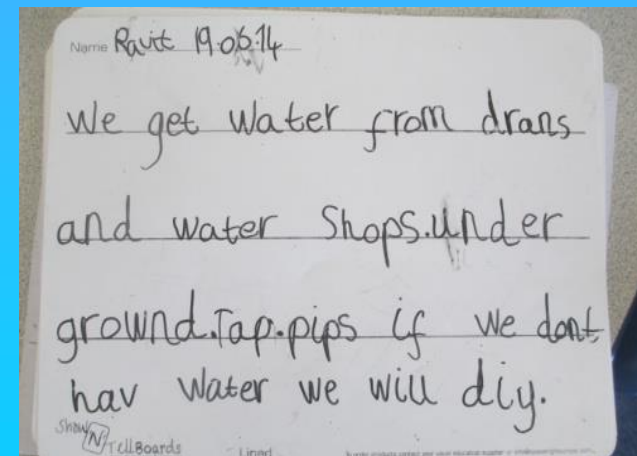 Name Ravit 19.06.14
We get water from drans
and water Shops.under
grownd.Tap.pips if we dont
hav water we will diy.
Show N Tell Boards
Lined